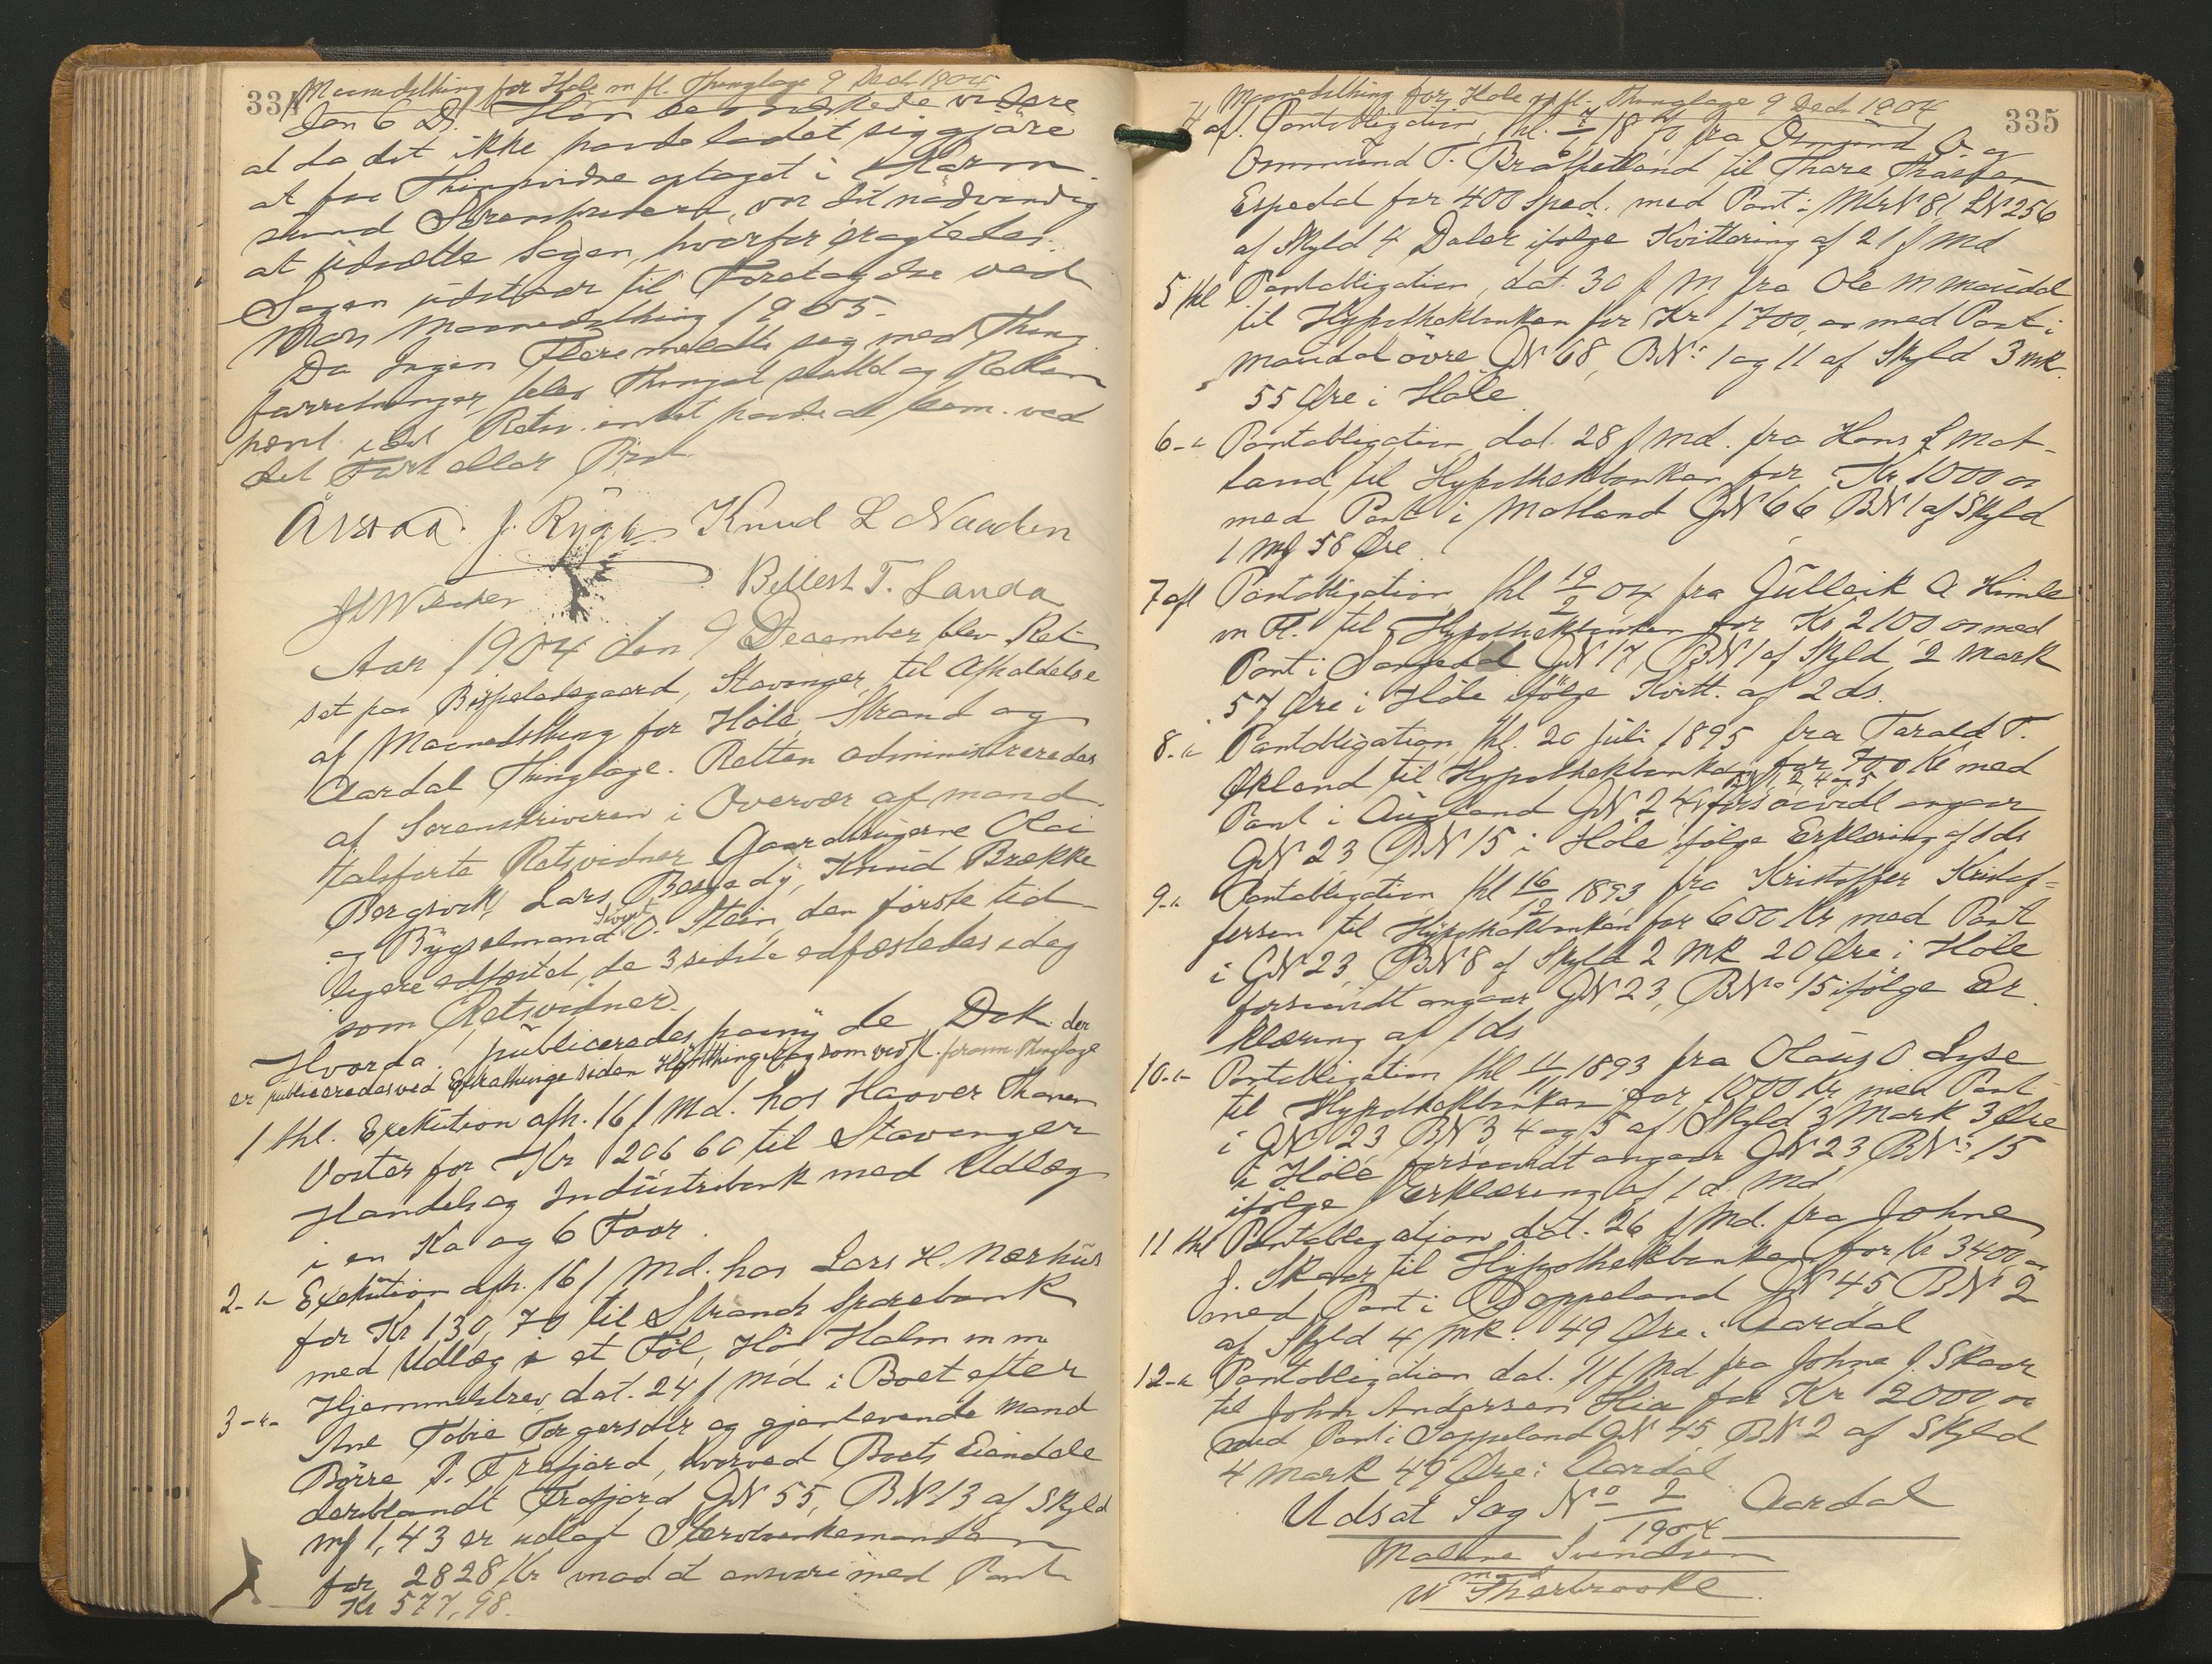 334
Maanedsthing for Höle m fl. Thinglage 9 Decb 1904
den 6 Ds. Han bemærkede videre
at da det ikke havde ladet sig gjöre
at faa Thingsvidne optaget i Karm-
sund Sorenskriveri, var det nødvendig
at udsætte Sagen, hvorfor
Sagen udstaar til Foretagelse ved
Mars Maanedsthing 1905.
Da Ingen Flere meldte sig med Thing
forretninger, blev Thinget sluttet og Retten
hævet. i Ret intet havde at bem. ved
det Førte eller Prot.
J. Rygh Knud L Naaden
Bellest T. Landa
Aar 1904 den 9 December blev Ret
sat paa Bispeladegaard, Stavanger, til Afholdelse
af Maanedsthing for Höle, Strand og
Aardal Thinglage. Retten administreredes
af Sorenskriveren i Overvær af mand-
talsførte Retsvidner Gaardbrugerne Olai
Bergsvik, Lars Bergedy, Knud Brække
og Bygselmand Sivert O. Stein, den første tid-
ligere edfæstet, de 3 sidste edfæstedes idag
som Retsvidner.
Hvorda publiceredes paany de Dok. der
er publiceredes ved Extrathinge siden Høstthinget og som ved k. fremm. Thinglage
1 thl. Exekution afh. 16 f Md. hos Haaver Thoresen
Voster for Kr 1206 60 til Stavanger
Handels og Industribank med Udlæg
i en Ko og 6 Faar.
2 - " - Exekution afh. 16 f Md. hos Lars H. Nærhus
for Kr 130,70 til Strands Sparebank
med Udlæg i et Føl, Hø Halm m m
3 - " - Hjemmelsbrev dat. 24 f Md. i Boet efter
Ane Tobie Torgersdtr og gjenlevende Mand
Börre P. Frafjord, hvorved Boets Eiendele
deriblandt Frafjord GN 55, BN 13 af Skyld
Mk 1,43 er udlagt Stervboenkemanden
for 2828 Kr mod at ansvare med Pant
Kr 577,98.
335
Maanedsthing for Höle m fl. Thinglage 9 Decb 1904
4 afl. Pantobligation, thl. 7/6 1870 fra Osmund O. og
Ommund T. Bratteland til Thore Thorsen
Espedal for 400 Sped. med Pant i MtrN 81 LN 256
af Skyld 4 Daler ifølge Kvittering af 21 f Md
5 thl Pantobligation, dat. 30 f M, fra Ole M Maudal
til Hypothekbanken for Kr 1700,00 med Pant i
Maudal övre GN 68, BN: 1 og 11 af Skyld 3 mk.
55 Øre i Höle
6 - " Pantobligation dat. 28 f Md. fra Hans L Mat-
land til Hypothekbanken for Kr 1000 00
med Pant i Matland GN 66 BN 1 af Skyld
1 Mk 58 Øre.
7 afl Pantobligation, thl 10/2 04 fra Gulleik A Himle
m fl. til Hypothekbanken for Kr 2100 00 med
Pant i GN 17, BN 1 af Skyld 2 Mark
57 Øre i Höle ifølge Kvitt. af 2 ds.
8. " Pantobligation thl. 20 Juli 1895 fra Tarald T.
Økland til Hypothekbanken for 700 Kr med
Pant i Augland GN 24, BN 1, 2, 4 og 5 forsaavidt angaar
GN 23 BN 15 i Höle ifølge Erklæring af 1 ds
9. " Pantobligation thl 16/12 1893 fra Kristoffer Kristof=
fersen til Hypothekbanken for 600 Kr med Pant
i GN 23, BN 8 af Skyld 2 Mk 20 Øre i Höle
forsaavidt angaar GN 23, BN: 15 ifølge Er-
klæring af 1 ds
10 - " Pantobligation thl 11/11 1893 fra Olaus O. Lyse
til Hypothekbanken for 1000 Kr med Pant
i GN 23, BN 3, 4 og 5 af Skyld 3 Mark 3 Øre
i Höle forsaavidt angaar GN 23 BN: 15
ifølge Erklæring af 1 d. Md.
11 thl Pantobligation dat. 26 f Md. fra Johne
J. Skaar til Hypothekbanken for Kr 3400,00
med Pant i Soppeland GN 45 BN 2
af Skyld 4 Mk. 49 Øre i Aardal
12 - " Pantobligation dat. 11 f Md fra Johne J. Skaar
til John Andersen Hia for Kr 2000,00
med Pant i Soppeland GN 45, BN 2 af Skyld
4 Mark 49 Øre i Aardal
Udsat Sag No 2/1904 Aardal
Malene Svendsen
mod
W Thorbroole